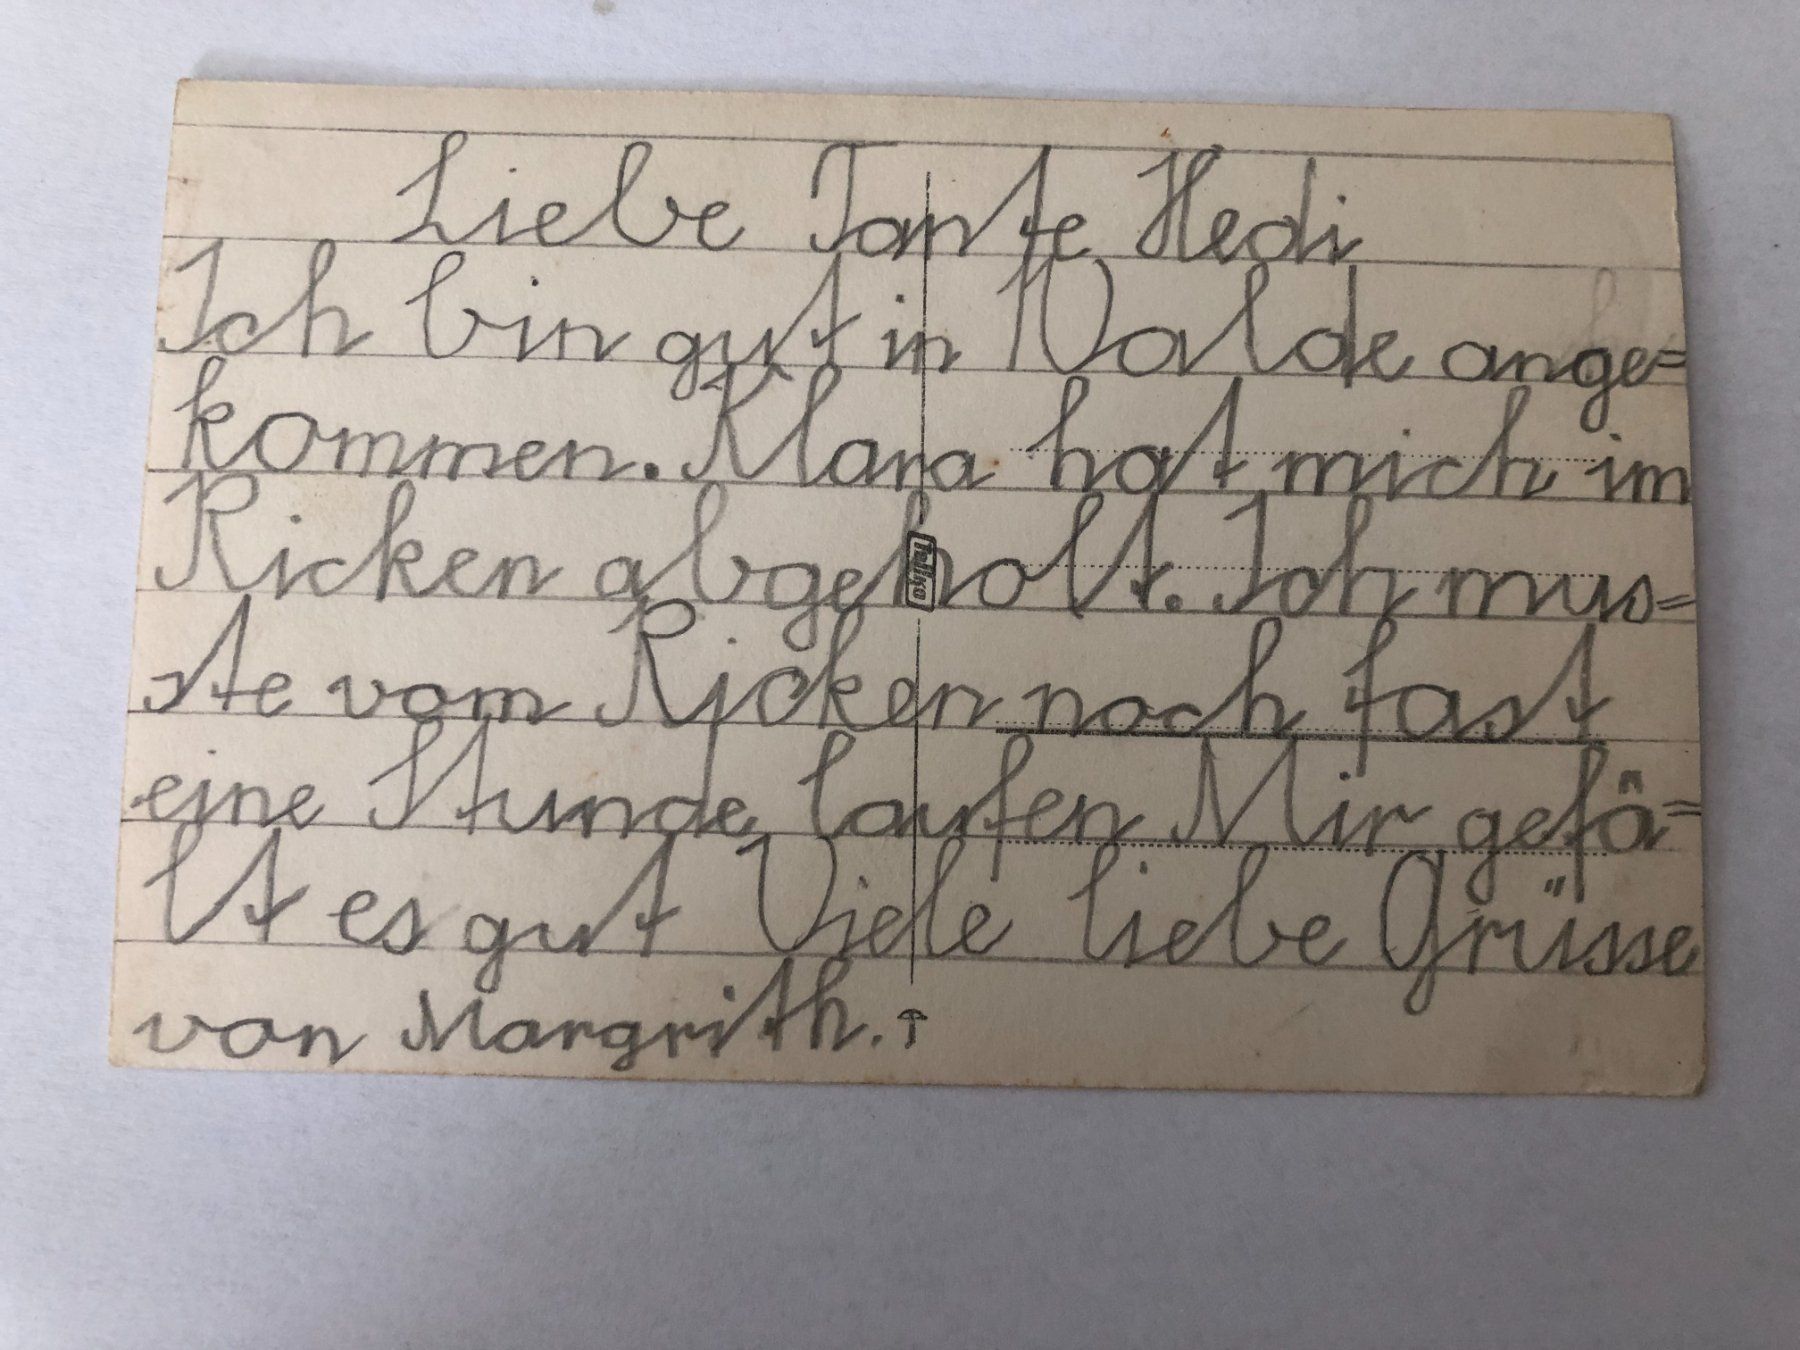 Liebe Tante Hedi
Ich bin gut in Walde ange=
kommen. Klara hat mich im
Ricken abgeholt. Ich mus=
ste vom Ricken noch fast
eine Stunde laufen Mir gefä=
lt es gut Viele liebe Grüsse
von Margrith.